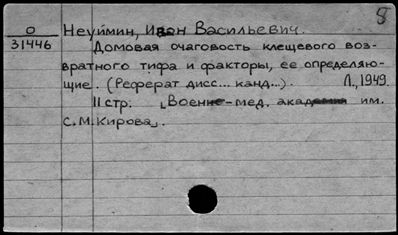 8
О
31446
Неуймин, Иван Васильевич.
Домовая очаговость клещевого воз-
вратного тифа и факторы, ее определяю-
щие. (Реферат дисс... канд...). Л., 1949.
11 стр. „Военно-мед. академия им.
С.М.Кирова„.